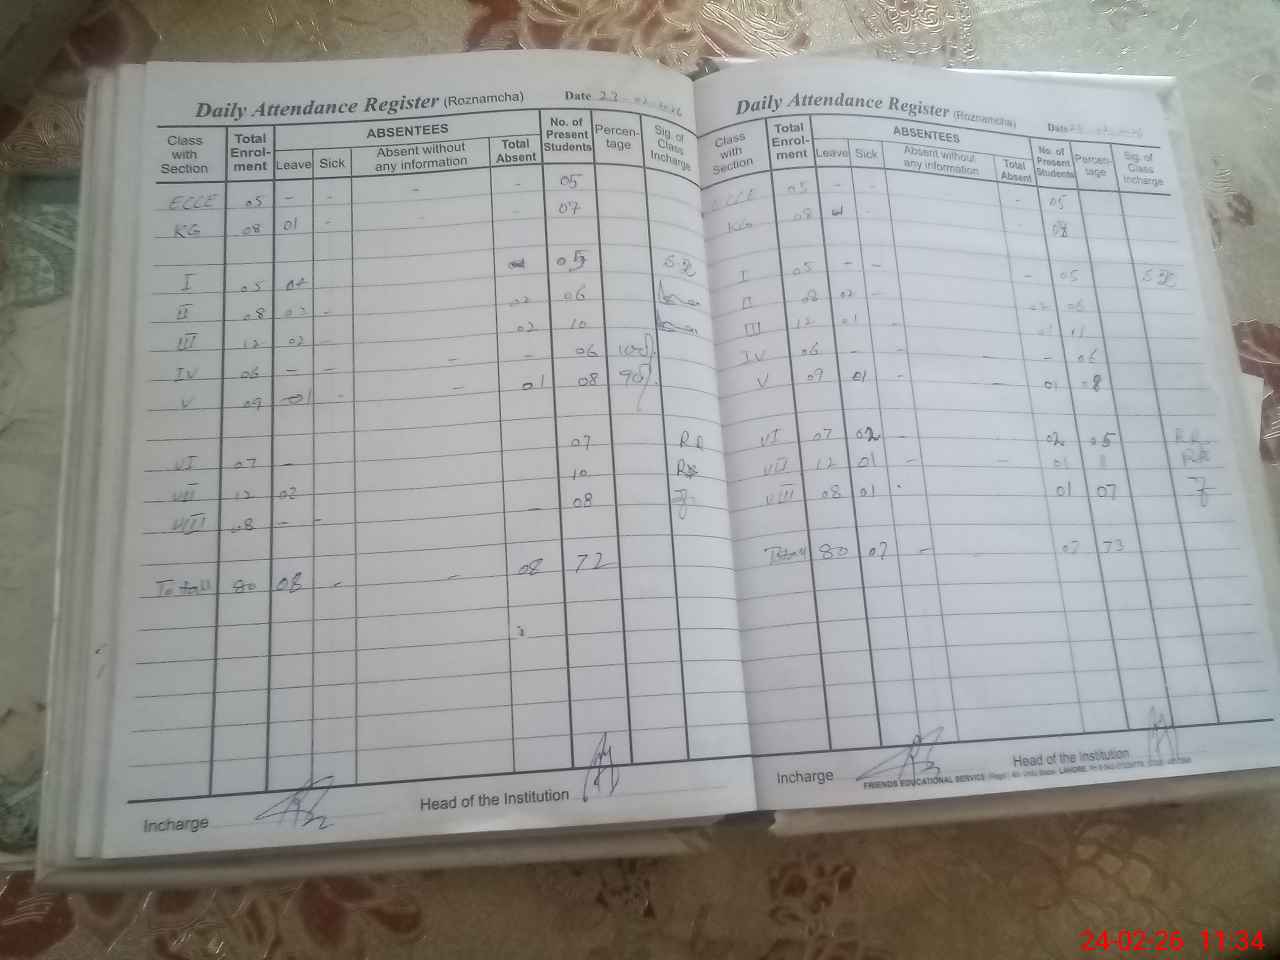 Daily Attendance Register (Roznamcha) Date 23-02-2026
Class with Section Total Enrol-ment ABSENTEES No. of Present Students Percen-tage Sig. of Class Incharge
Leave Sick Absent without any information Total Absent
ECCE 05 - - - - 05
KG 08 01 - - - 07
I 05 05 S.Z
II 08 02 - 02 06
III 12 02 - 02 10
IV 06 - - - - 06 100%
V 09 01 - - 01 08 90%
VI 07 - 07 RR
VII 12 02 10 RR
VIII 08 - - - 08
Totall 80 08 - - 08 72
Incharge Head of the Institution
Daily Attendance Register (Roznamcha) Date
Class with Section Total Enrol-ment ABSENTEES No. of Present Students Percen-tage Sig. of Class Incharge
Leave Sick Absent without any information Total Absent
ECCE 05 - - - 05
KG 08 - - 08
I 05 - - - 05 S.Z
II 08 02 - 02 06
III 12 01 - 01 11
IV 06 - - - - 06
V 09 01 - - 01 08
VI 07 02 - 02 05 RR
VII 12 01 - - 01 11 RR
VIII 08 01 - 01 07
Totall 80 07 - 07 73
Incharge Head of the Institution
FRIENDS EDUCATIONAL SERVICE (Regd.) 40- Urdu Bazar LAHORE.
24-02-26 11:34